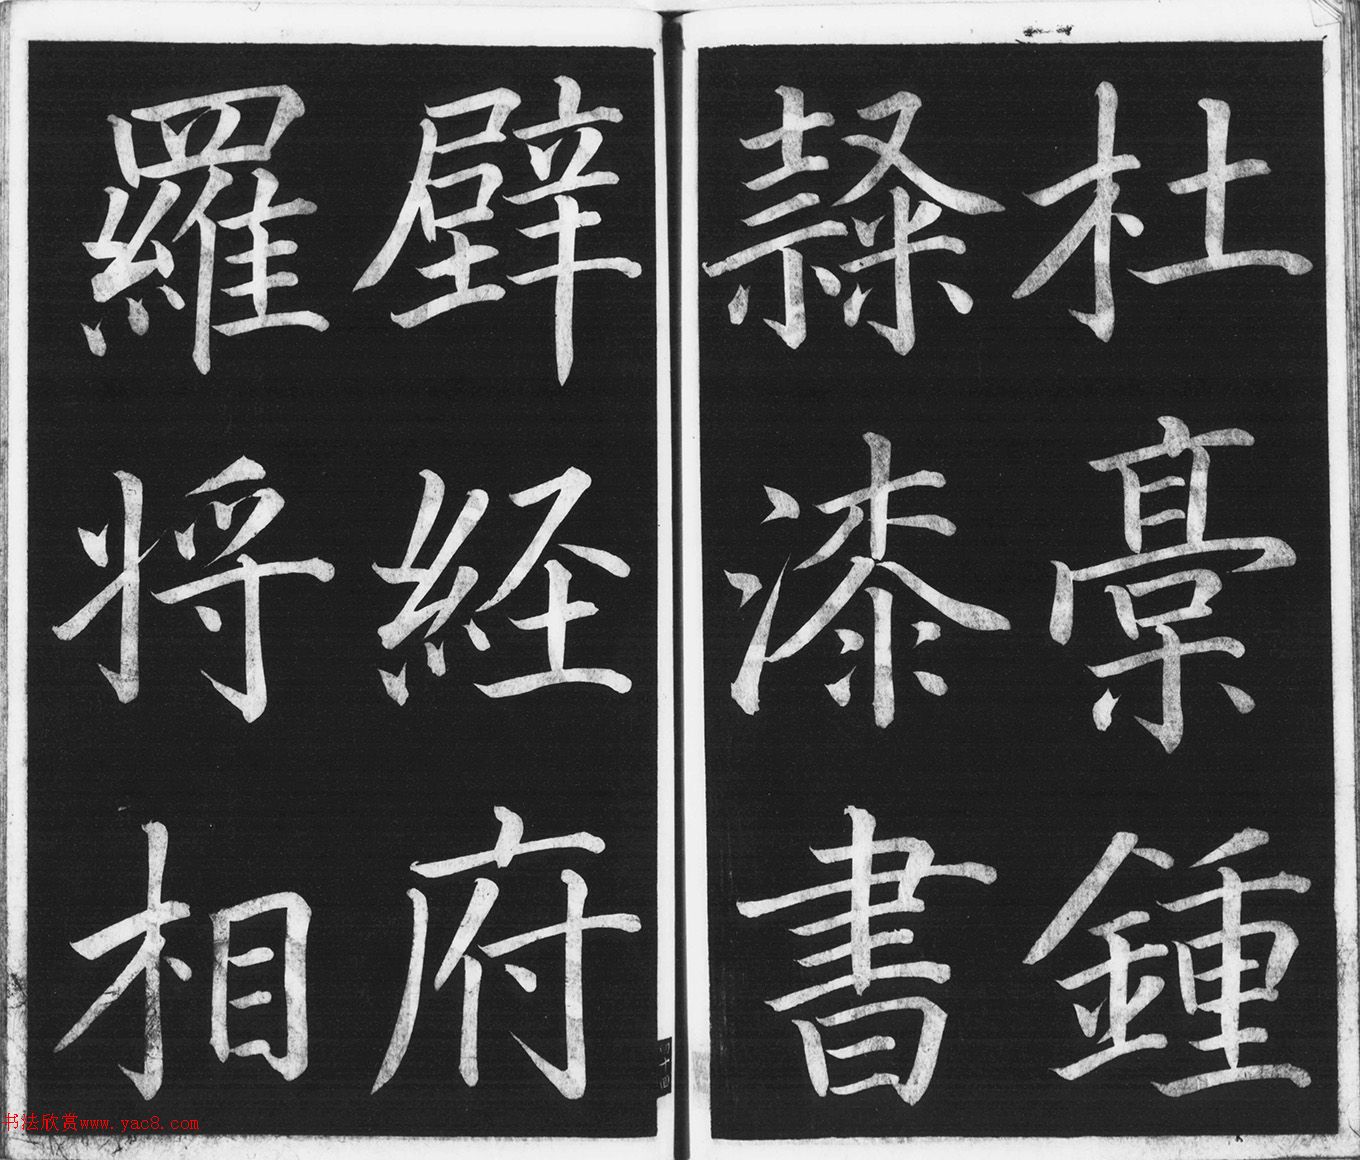 杜稾鍾
隸漆書
壁経府
羅将相
三十四
书法欣赏www.yac8.com